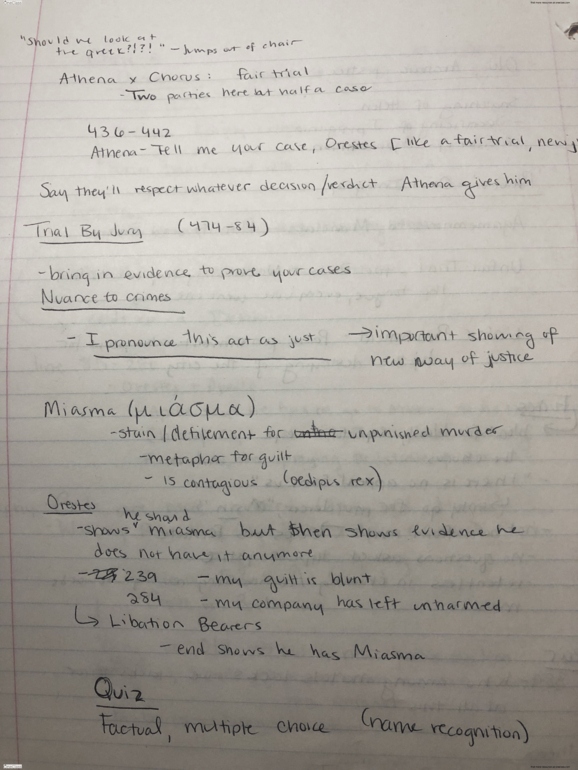 "Should we look at
the greek?!?!" - Jumps out of chair
Athena x Chorus: fair trial
- Two parties here but half a case
436-442
Athena - Tell me your case, Orestes [like a fair trial,
Say they'll respect whatever decision/verdict Athena gives him
Trial By Jury (474-84)
- bring in evidence to prove your cases
Nuance to crimes
- I pronounce this act as just → important showing of
new way of justice
Miasma (μιάσμα)
- stain/defilement for unpunished murder
- metaphor for guilt
- is contagious (oedipus rex)
Orestes
he shard
- shows miasma but then shows evidence he
does not have it anymore
- 239 - my guilt is blunt
284 - my company has left unharmed
↳ Libation Bearers
- end shows he has Miasma
Quiz
Factual, multiple choice (name recognition)